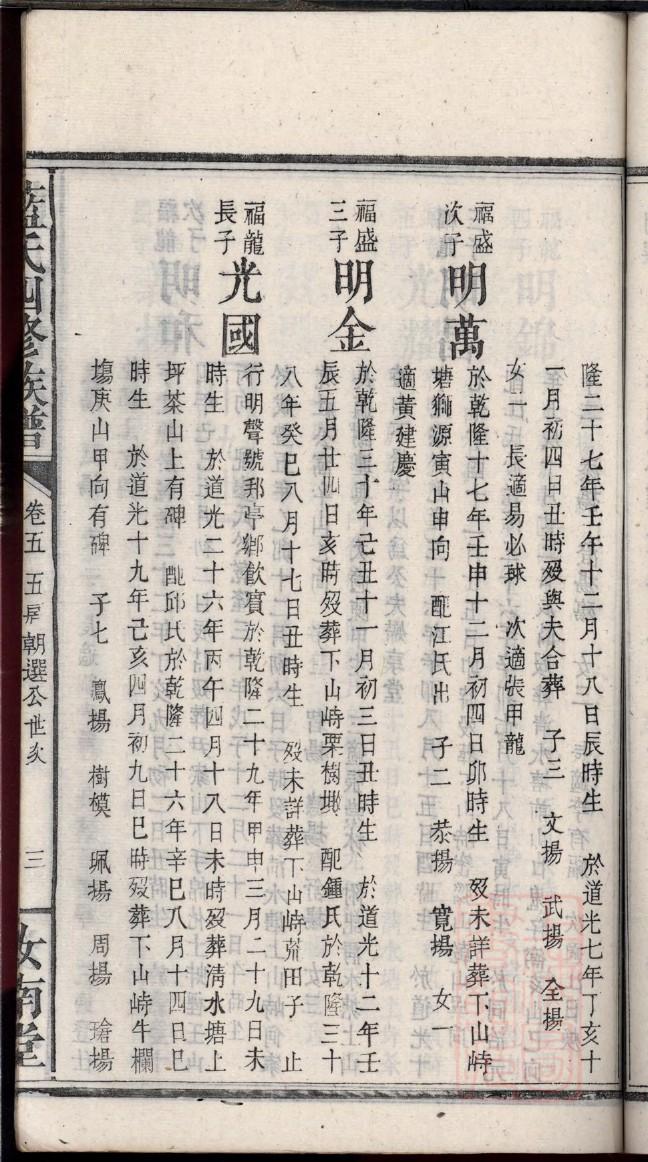 隆二十七年壬午十二月十八日辰時生　於道光七年丁亥十
一月初四日丑時歿與夫合葬　子三　文揚　武揚　全揚
女二　長適易必球　次適張甲龍
福盛
次子
明萬
於乾隆十七年壬申十二月初四日卯時生　歿未詳葬下山峙
塘獅源寅山申向　配江氏出　子二　恭揚　寬揚　女一
適黃建慶
福盛
三子
明金
於乾隆三十年己丑十一月初三日丑時生　於道光十二年壬
辰五月廿四日亥時歿葬下山峙栗樹墩　配鍾氏於乾隆三十
八年癸巳八月十七日丑時生　歿未詳葬下山峙荒田子　止
福龍
長子
光國
行明聲號邦亭鄉飲賓於乾隆二十九年甲申三月二十九日未
時生　於道光二十六年丙午四月十八日未時歿葬清水塘上
坪茶山上有碑　配邱氏於乾隆二十六年辛巳八月十四日巳
時生　於道光十九年己亥四月初九日巳時歿葬下山峙牛欄
塲庚山甲向有碑　子七　鳳揚　樹模　珮揚　周揚　瑲揚
藍氏四修族譜
卷五　五房朝選公世系
三
汝南堂